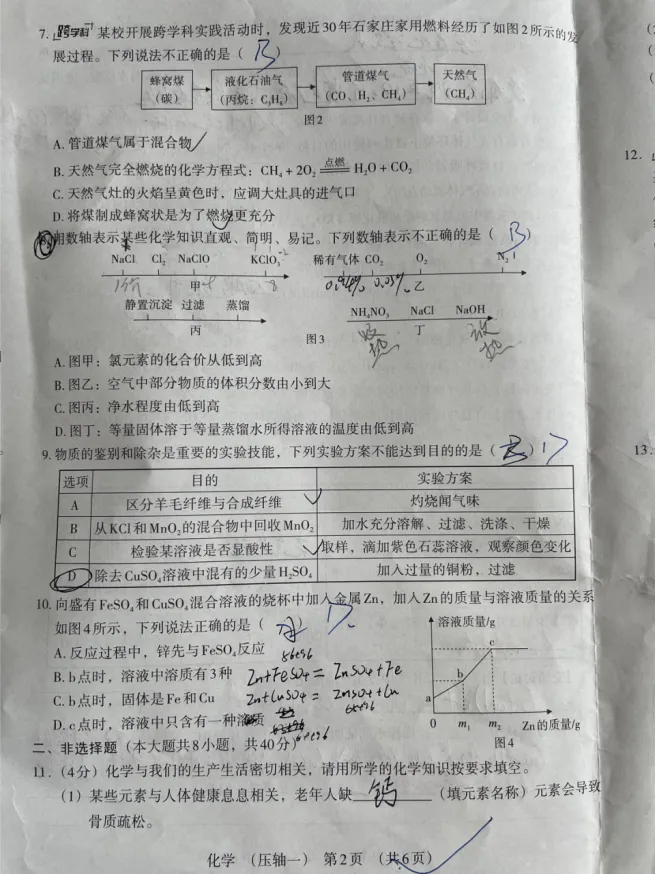 7. 跨学科 某校开展跨学科实践活动时，发现近30年石家庄家用燃料经历了如图2所示的发
展过程。下列说法不正确的是（ B ）
蜂窝煤（碳） 液化石油气（丙烷：C₃H₈） 管道煤气（CO、H₂、CH₄） 天然气（CH₄）
图2
A. 管道煤气属于混合物
B. 天然气完全燃烧的化学方程式：CH₄ + 2O₂ 点燃 H₂O + CO₂
C. 天然气灶的火焰呈黄色时，应调大灶具的进气口
D. 将煤制成蜂窝状是为了燃烧更充分
8. 用数轴表示某些化学知识直观、简明、易记。下列数轴表示不正确的是（ B ）
NaCl Cl₂ NaClO KClO₃ 稀有气体 CO₂ O₂ N₂
甲 乙
静置沉淀 过滤 蒸馏 NH₄NO₃ NaCl NaOH
丙 吸热 丁 放热
图3
A. 图甲：氯元素的化合价从低到高
B. 图乙：空气中部分物质的体积分数由小到大
C. 图丙：净水程度由低到高
D. 图丁：等量固体溶于等量蒸馏水所得溶液的温度由低到高
9. 物质的鉴别和除杂是重要的实验技能，下列实验方案不能达到目的的是（ ） D
选项 目的 实验方案
A 区分羊毛纤维与合成纤维 灼烧闻气味
B 从KCl和MnO₂的混合物中回收MnO₂ 加水充分溶解、过滤、洗涤、干燥
C 检验某溶液是否显酸性 取样，滴加紫色石蕊溶液，观察颜色变化
D 除去CuSO₄溶液中混有的少量H₂SO₄ 加入过量的铜粉，过滤
10. 向盛有FeSO₄和CuSO₄混合溶液的烧杯中加入金属Zn，加入Zn的质量与溶液质量的关系
如图4所示，下列说法正确的是（ ） D
A. 反应过程中，锌先与FeSO₄反应
B. b点时，溶液中溶质有3种 Zn+FeSO₄ = ZnSO₄+Fe
C. b点时，固体是Fe和Cu Zn+CuSO₄ = ZnSO₄+Cu
D. c点时，溶液中只含有一种溶质
溶液质量/g
c
b
a
0 m₁ m₂ Zn的质量/g
图4
二、非选择题（本大题共8小题，共40分）
11.（4分）化学与我们的生产生活密切相关，请用所学的化学知识按要求填空。
（1）某些元素与人体健康息息相关，老年人缺 钙 （填元素名称）元素会导致
骨质疏松。
化学 （压轴一） 第2页 （共6页）
12.
13.